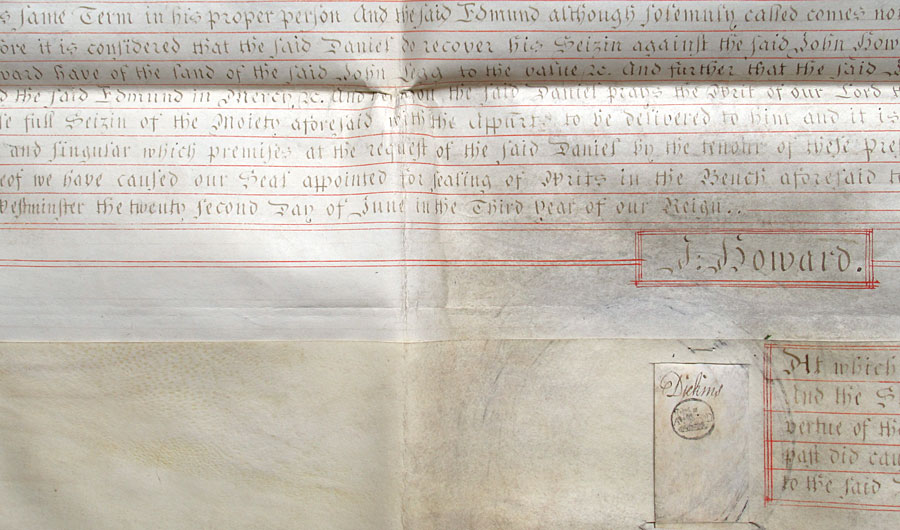 s same Term in his proper person And the said Edmund although solemnly called comes no
ore it is considered that the said Daniel do recover his Seizin against the said John How
ward have of the land of the said John Legg to the value &c. And further that the said J
d the said Edmund in Mercy &c. And the said Daniel prays the Writ of our Lord
e full Seizin of the Moiety aforesaid with the Appurts to be delivered to him and it is
and singular which premises at the request of the said Daniel by the tenour of these pre
eof we have caused our Seal appointed for sealing of Writs in the Bench aforesaid to
Westminster the twenty second Day of June in the Third year of our Reign..
J: Howard.
Dickins
At which
And the S
vertue of the
past did cau
to the said